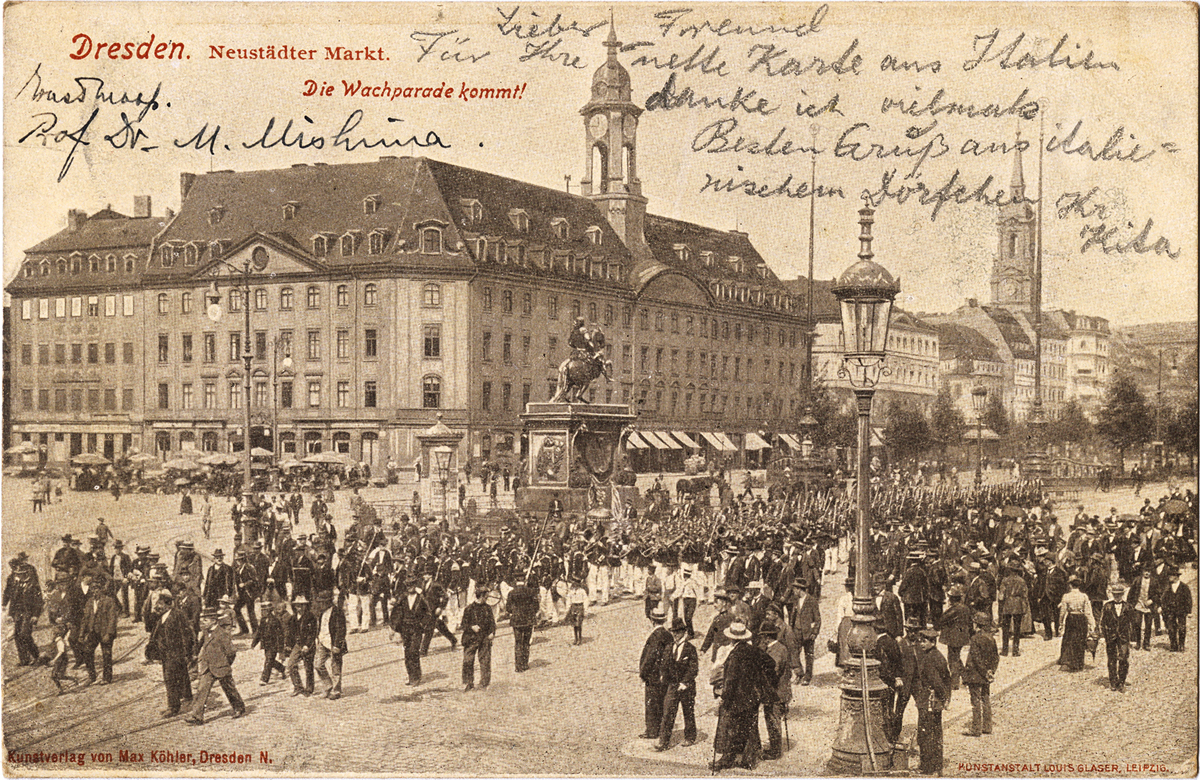 Dresden. Neustädter Markt.
Die Wachparade kommt!
Prof Dr. M. Mishina.
Lieber Foreund
Für Ihre nette Karte aus Italien
danke ich vielmals
Besten Gruß aus italie=
nischem Dörfchen
Ihr
Kita
Kunstverlag von Max Köhler, Dresden N.
KUNSTANSTALT LOUIS GLASER, LEIPZIG.